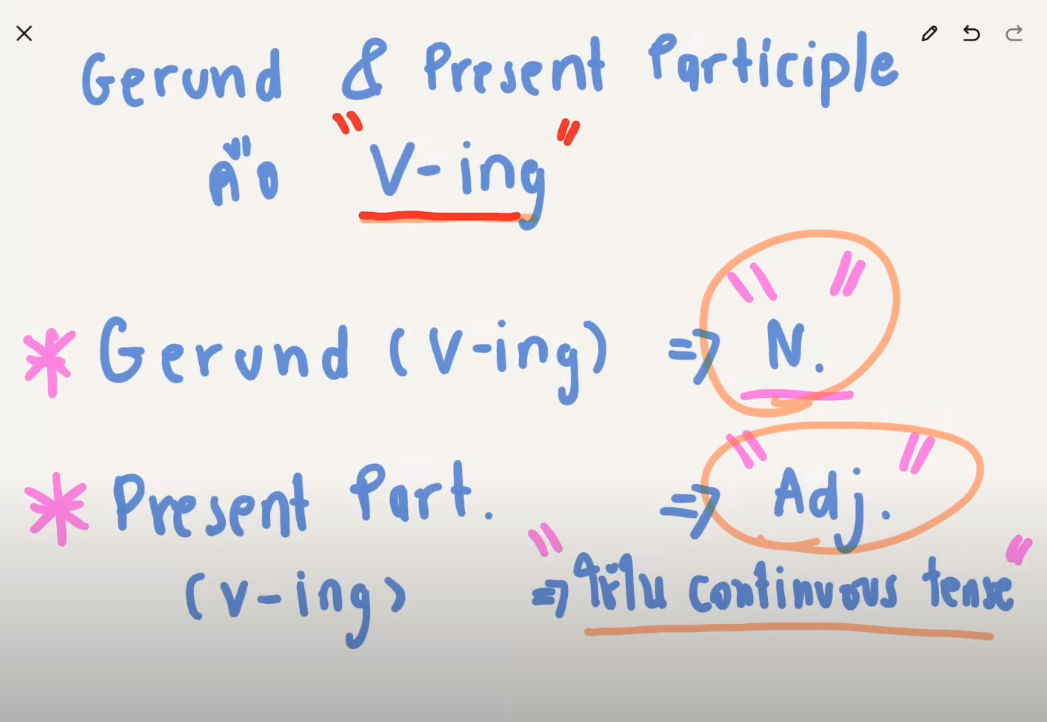 Gerund & Present Participle
คือ "V-ing"
* Gerund (V-ing) => "N."
* Present Part. => "Adj."
(V-ing) => "ใช้ใน continuous tense"